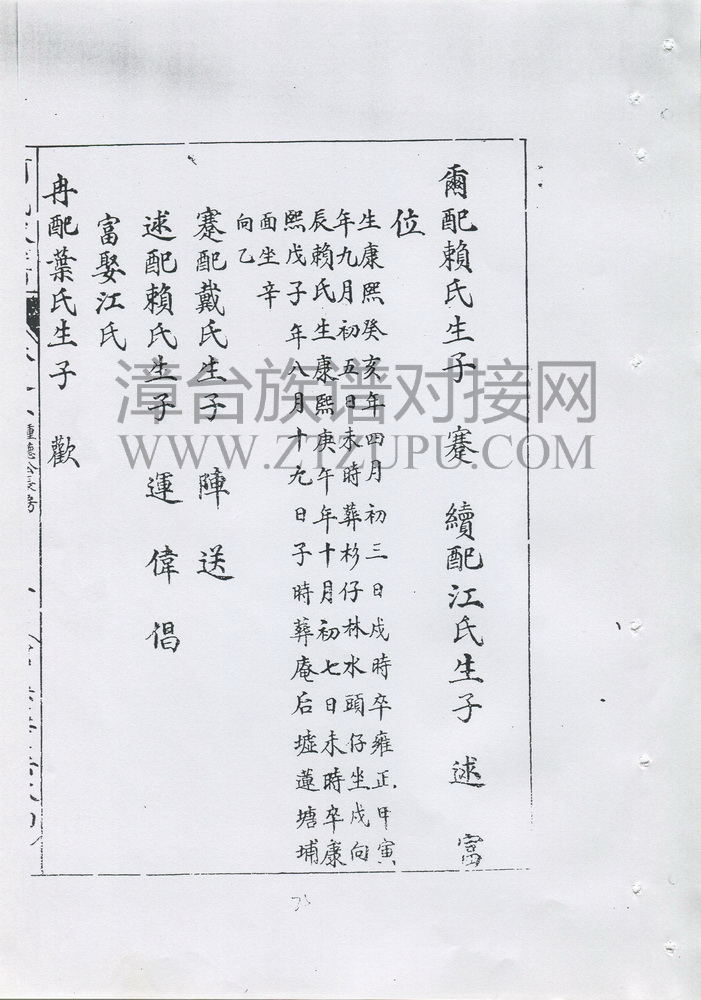 爾配賴氏生子 蹇 續配江氏生子 述 富
位
生康熙癸亥年四月初三日戍時卒雍正甲寅
年九月初五日未時葬杉仔林水頭仔坐戍向
辰賴氏生康熙庚午年十月初七日未時卒康
熙戊子年八月十九日子時葬庵后墟蓮塘埔
面坐辛
向乙
蹇配戴氏生子 陣 送
述配賴氏生子 運 偉 倡
富娶江氏
冉配葉氏生子 歡
鍾德公長房
漳台族谱对接网
WWW.ZTZUPU.COM